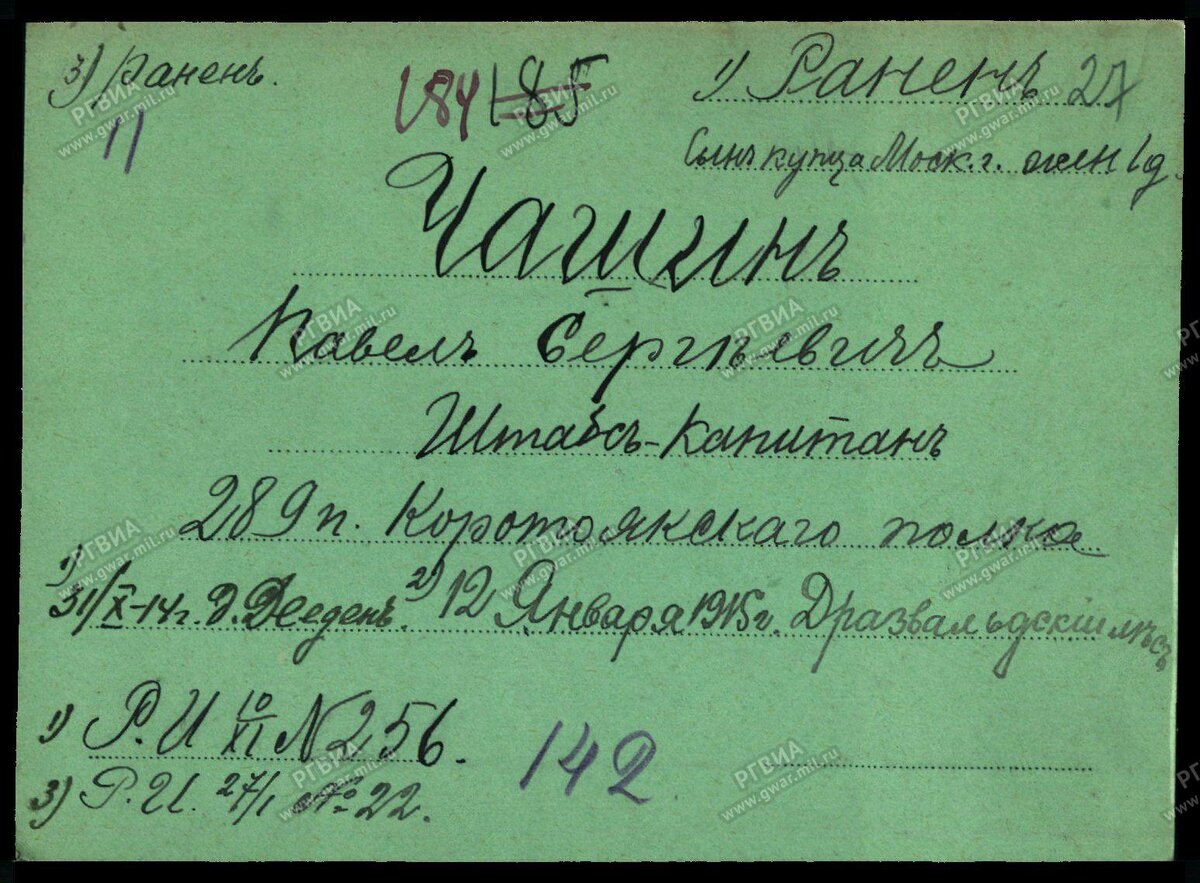 3) раненъ.
184 185
1) Раненъ 27
11
Сынъ купца Моск. г. жен 1 д.
Чашинъ
Павелъ Сергѣевичъ
Штабсъ-Капитанъ
289 п. Коротоякскаго полка
1) 31/X-14 г. д. 2) 12 Января 1915 г. Дразвальдскій лѣсъ
1) Р. И 10/XI N 256.
142
3) Р. И. 27/I №22.
РГВИА
www.gwar.mil.ru